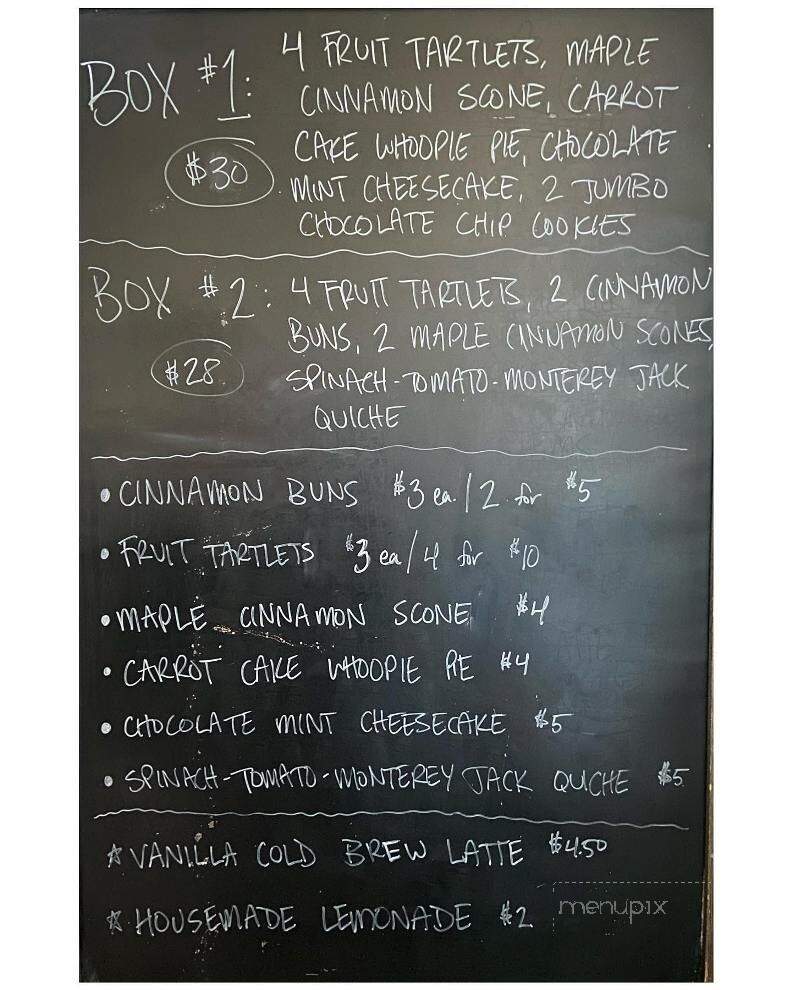 BOX #1: 4 FRUIT TARTLETS, MAPLE
CINNAMON SCONE, CARROT
CAKE WHOOPIE PIE, CHOCOLATE
$30 MINT CHEESECAKE, 2 JUMBO
CHOCOLATE CHIP COOKIES
BOX #2: 4 FRUIT TARTLETS, 2 CINNAMON
BUNS, 2 MAPLE CINNAMON SCONES,
$28 SPINACH-TOMATO-MONTEREY JACK
QUICHE
• CINNAMON BUNS $3 ea. / 2 for $5
• FRUIT TARTLETS $3 ea / 4 for $10
• MAPLE CINNAMON SCONE $4
• CARROT CAKE WHOOPIE PIE $4
• CHOCOLATE MINT CHEESECAKE $5
• SPINACH-TOMATO-MONTEREY JACK QUICHE $5
☆ VANILLA COLD BREW LATTE $4.50
☆ HOUSEMADE LEMONADE $2
menupix